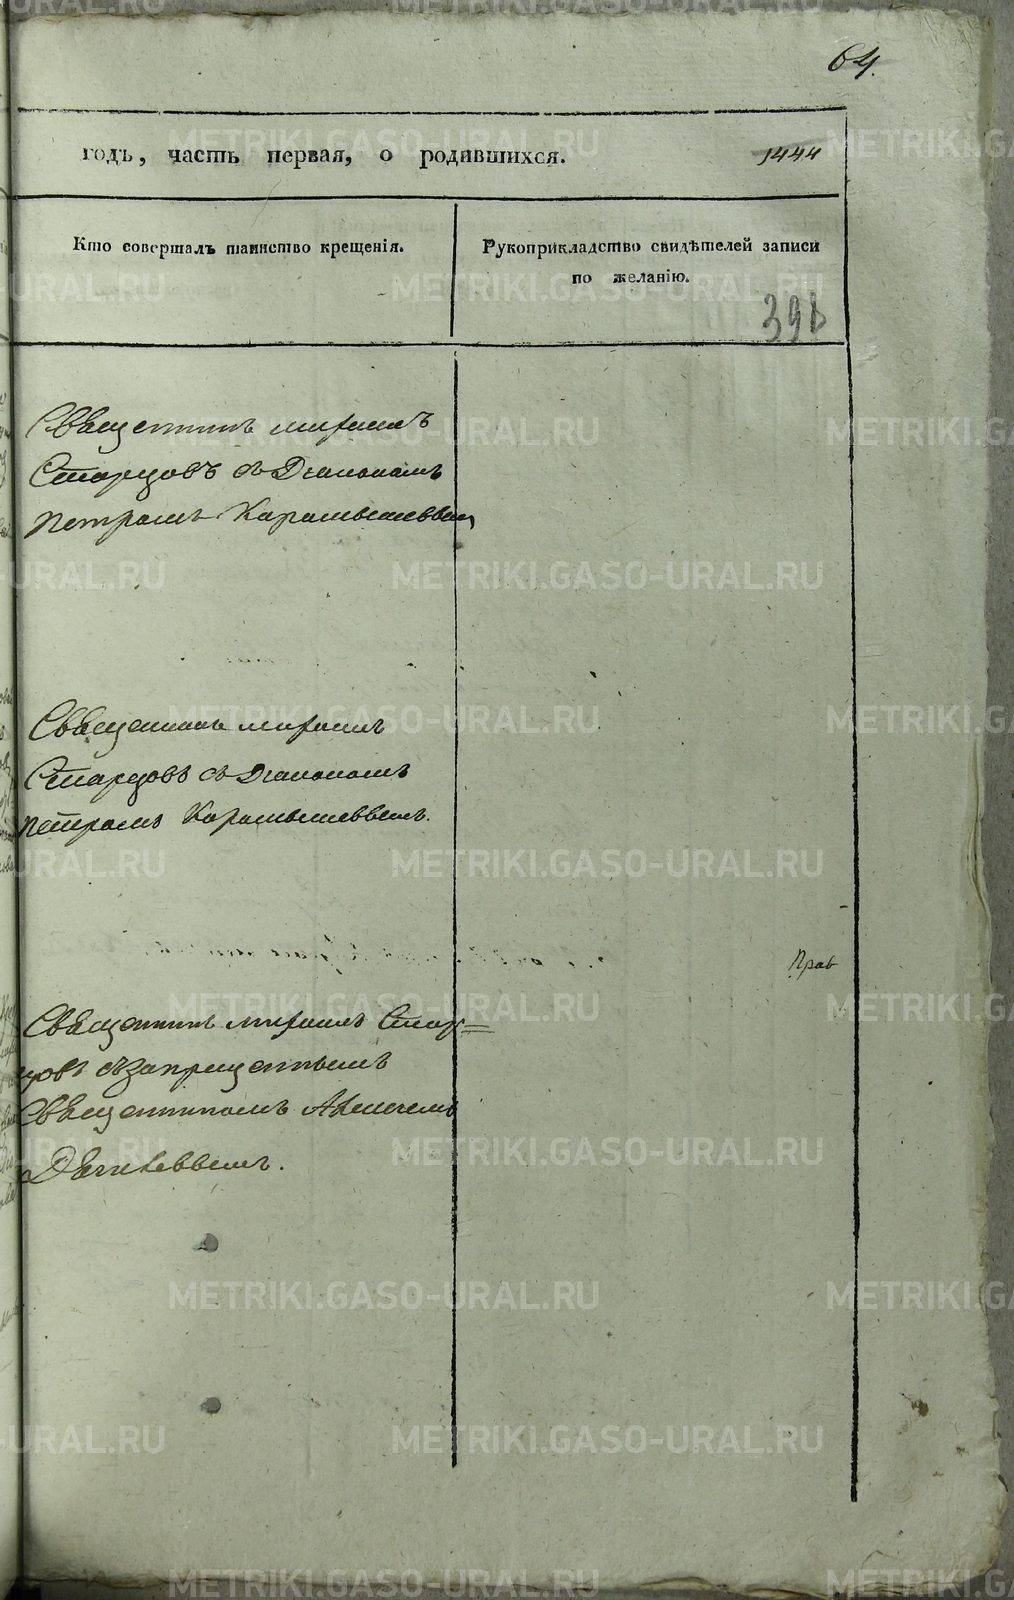 64.
годъ, часть первая, о родившихся.
1444
Кто совершалъ таинство крещенія.
Рукоприкладство свидѣтелей записи
по желанію.
398
Священникъ Миронъ
Старцовъ съ Діакономъ
Петромъ Карамышеввым
Священникъ Миронъ
Старцовъ съ Діакономъ
Петромъ Карамышеввымъ.
Прав
Священникъ Миронъ Стар=
цовъ съ запрещеннымъ
Священникомъ
METRIKI.GASO-URAL.RU